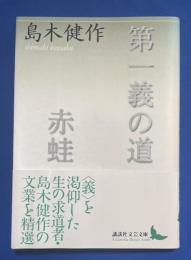 島木健作
shimaki kensaku
第一義の道
赤蛙
〈義〉を
渇仰した
生の求道者・
島木健作の
文業を精選
講談社文芸文庫